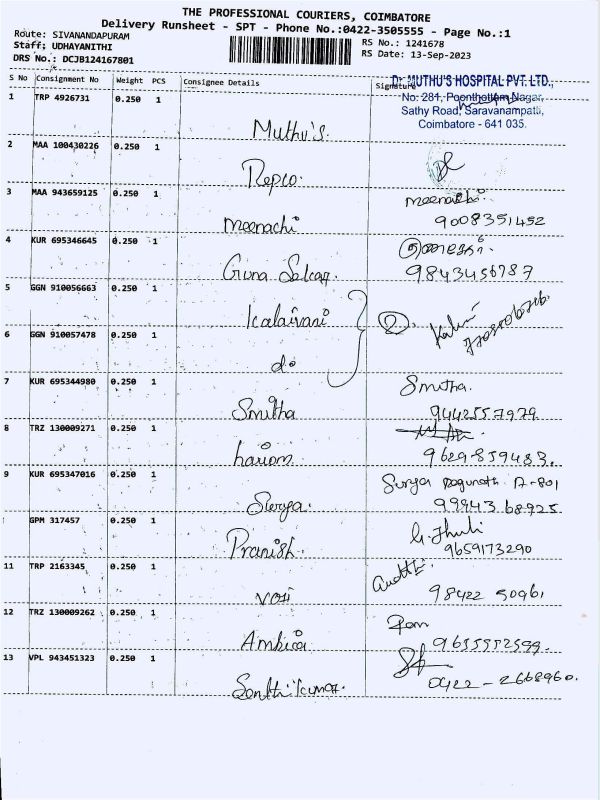 THE PROFESSIONAL COURIERS, COIMBATORE
Delivery Runsheet - SPT - Phone No.:0422-3505555 - Page No.:1
Route: SIVANANDAPURAM
Staff: UDHAYANITHI
DRS No.: DCJB124167801
RS No.: 1241678
RS Date: 13-Sep-2023
S No Consignment No Weight PCS Consignee Details Signature
Dr. MUTHU'S HOSPITAL PVT. LTD.,
No: 281, Poonthottam Nagar,
Sathy Road, Saravanampatti,
Coimbatore - 641 035.
1 TRP 4926731 0.250 1
Muthu's.
2 MAA 100430226 0.250 1
Repco.
3 MAA 943659125 0.250 1
Meenachi
Meenakhi.
9008351452
4 KUR 695346645 0.250 1
Guna Sekar.
9843456787
5 GGN 910056663 0.250 1
Kalaivani
2.
6 GGN 910057478 0.250 1
do
7 KUR 695344980 0.250 1
Smitha
Smitha.
9442557979
8 TRZ 130009271 0.250 1
hariom
9629-859483.
9 KUR 695347016 0.250 1
Surya.
Surya Ragunath A-801
99943 68925
GPM 317457 0.250 1
Pranish.
9659173290
11 TRP 2163345 0.250 1
98422 50961
12 TRZ 130009262 0.250 1
Ambica
Ram
9655552599.
13 VPL 943451323 0.250 1
Senthil kumar.
0422-2668960.